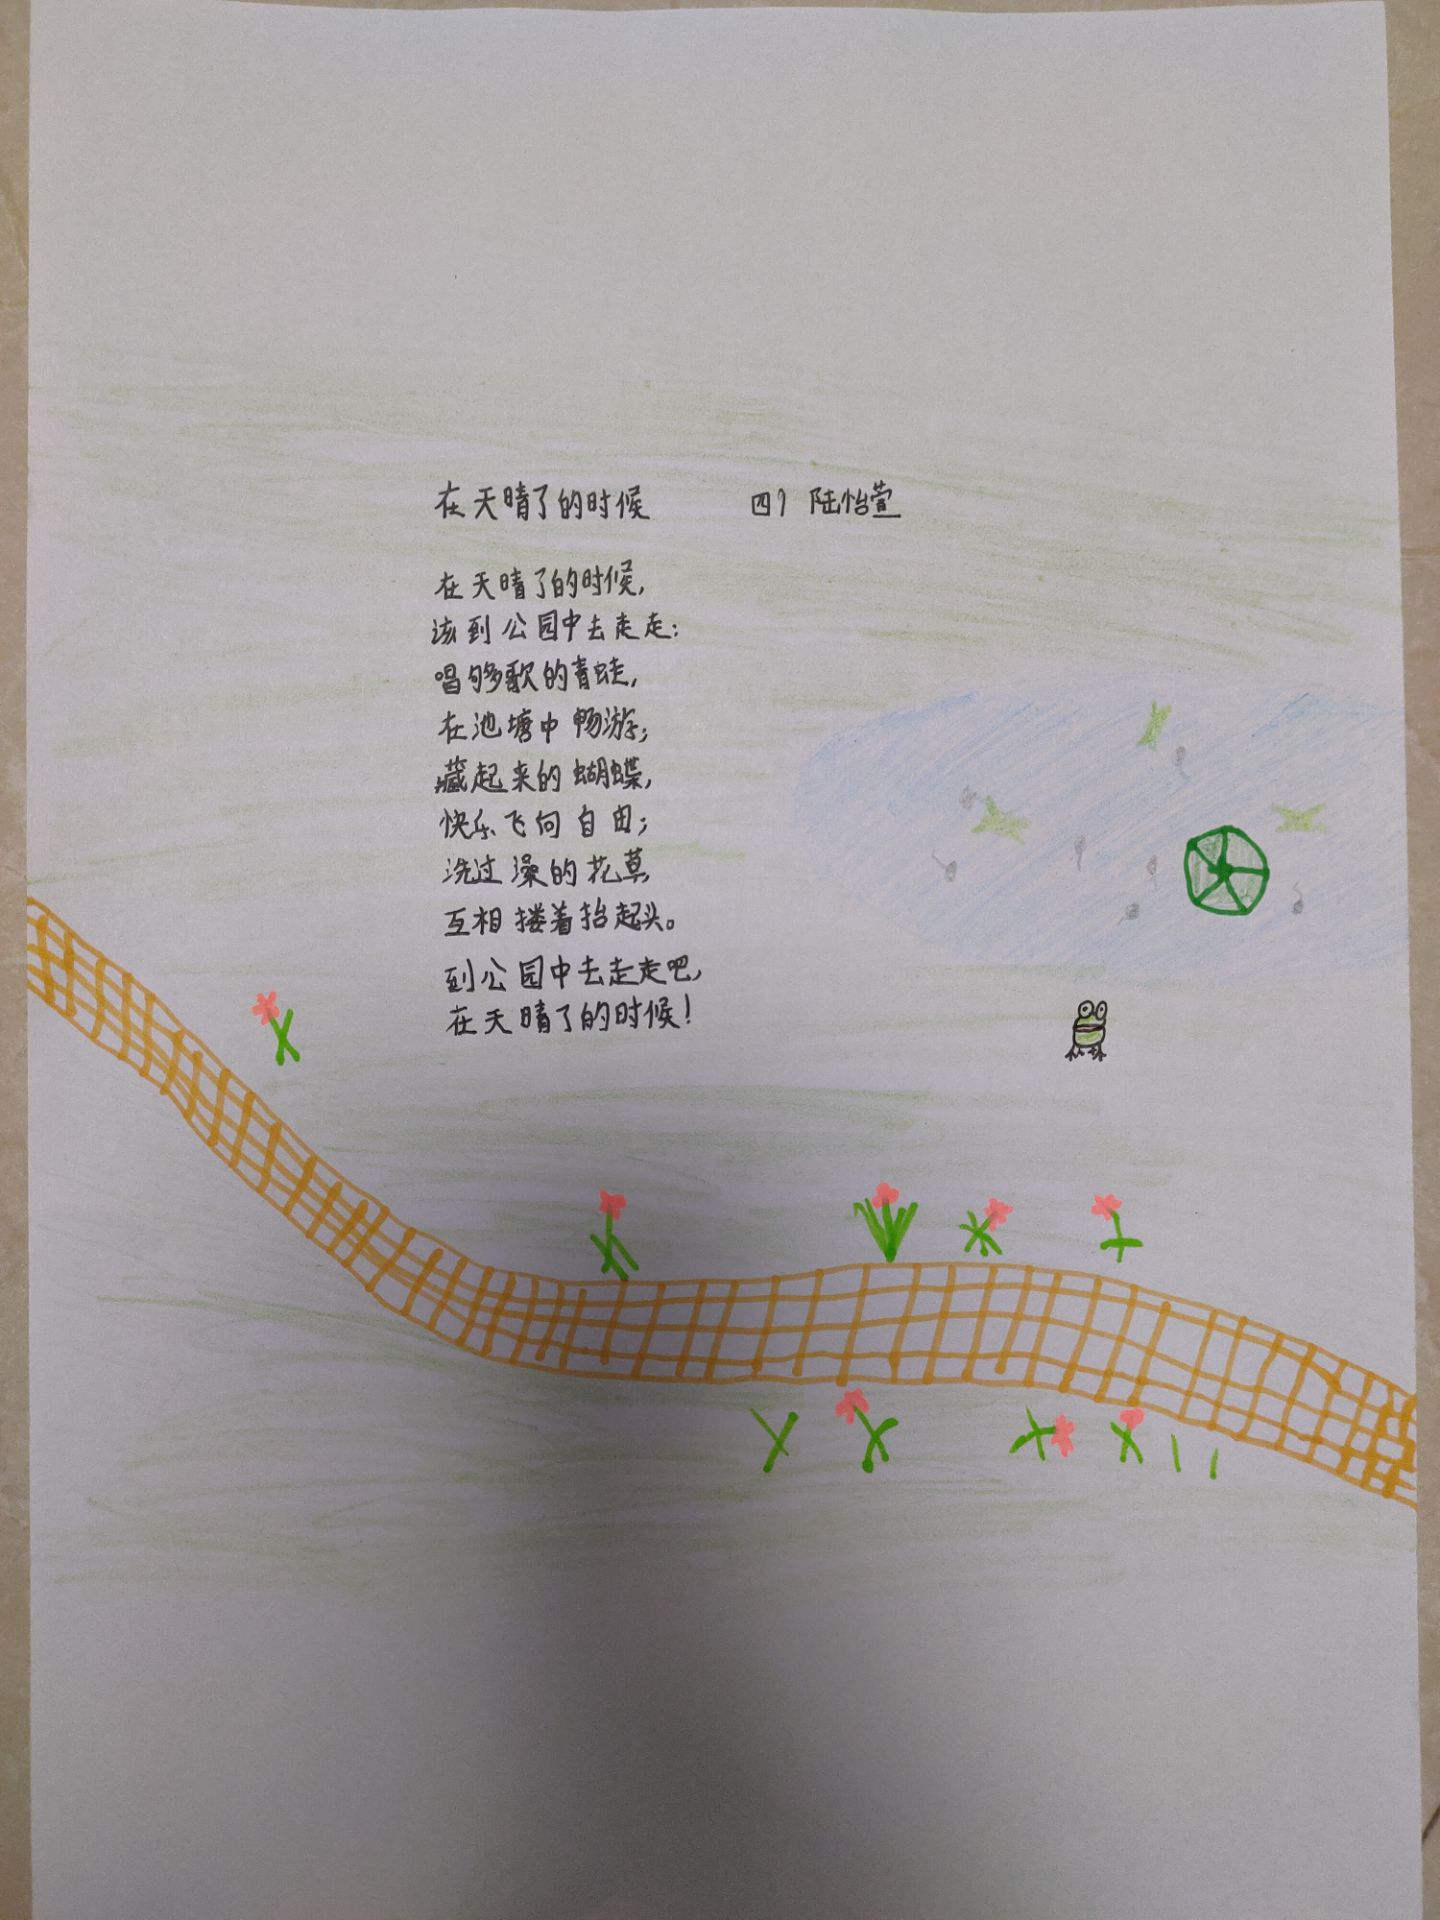 在天晴了的时候 四1 陆怡萱
在天晴了的时候,
该到公园中去走走:
唱够歌的青蛙,
在池塘中畅游;
藏起来的蝴蝶,
快乐飞向自由;
洗过澡的花草
互相搂着抬起头。
到公园中去走走吧,
在天晴了的时候!